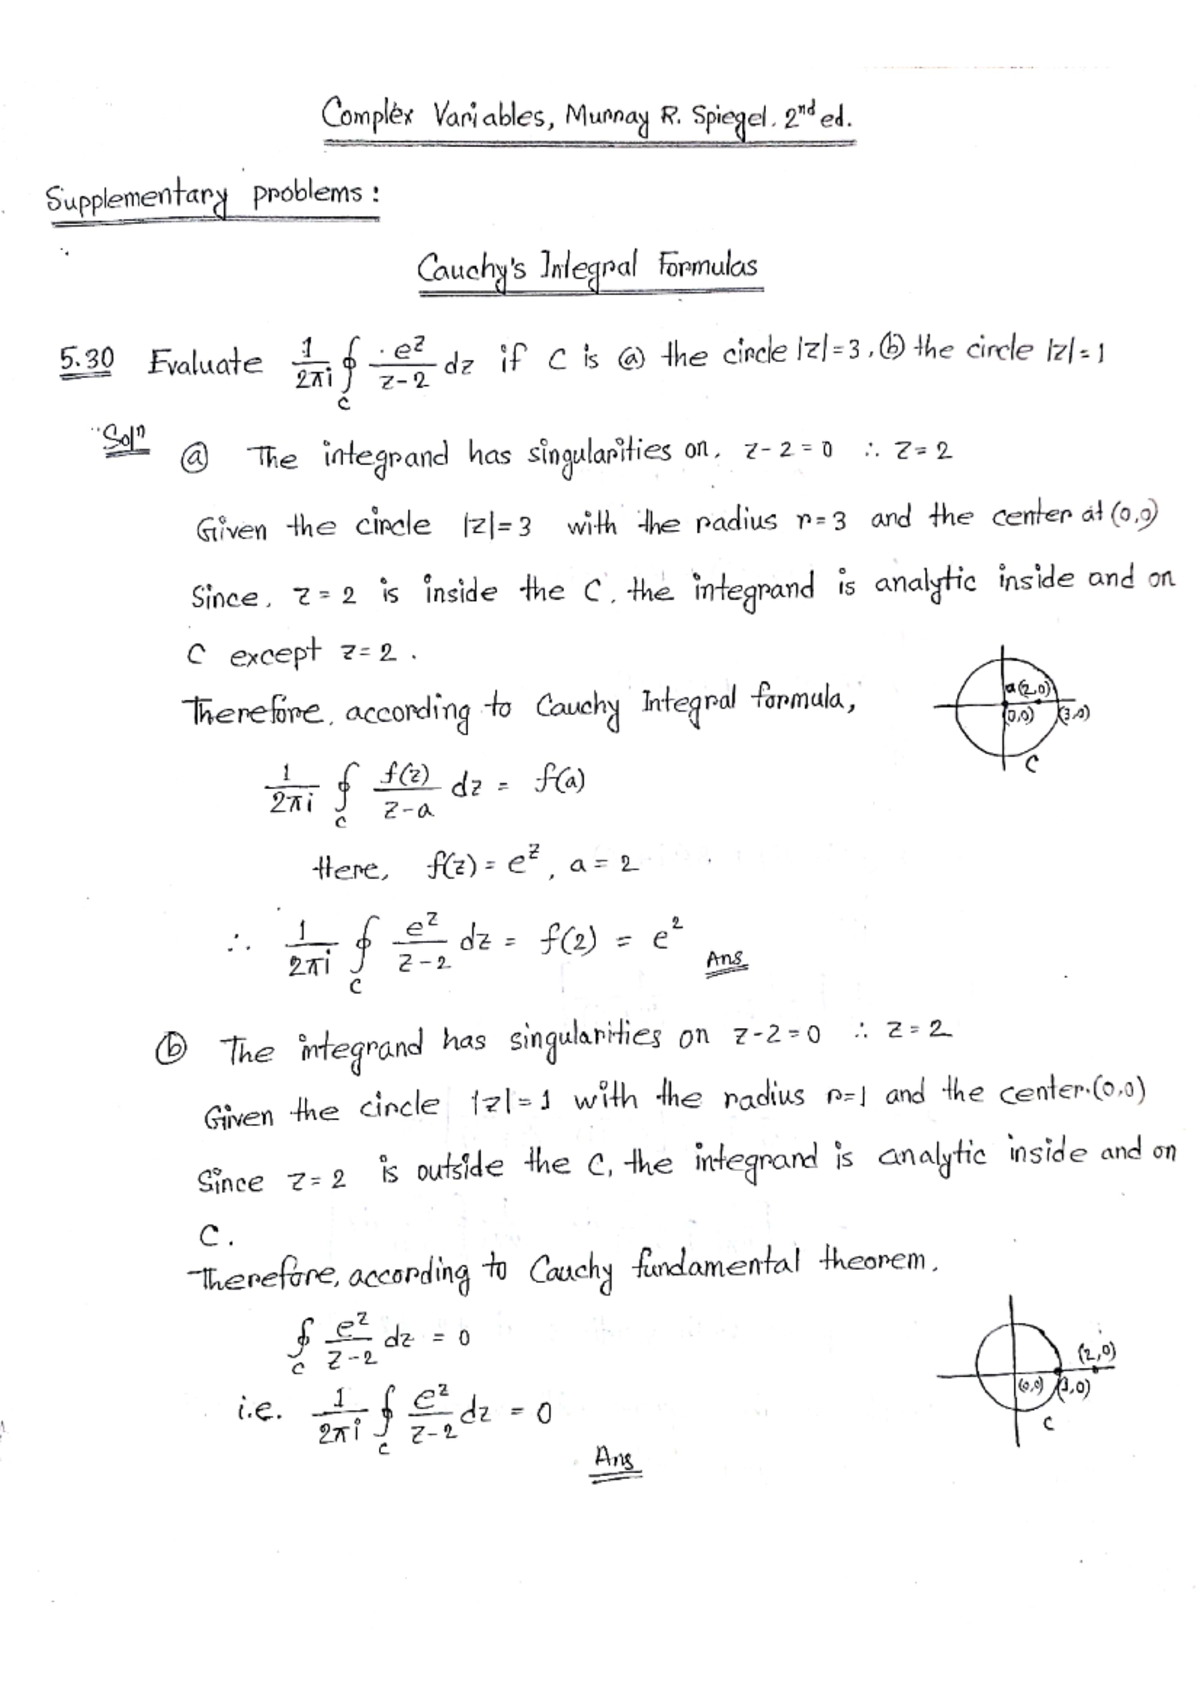 Complex Variables, Murray R. Spiegel. 2nd ed.
Supplementary problems:
Cauchy's Integral Formulas
5.30 Evaluate 1/2πi ∮_C e^z/z-2 dz if C is ⓐ the circle |z|=3, ⓑ the circle |z|=1
Solⁿ
ⓐ The integrand has singularities on, z-2=0 ∴ z=2
Given the circle |z|=3 with the radius r=3 and the center at (0,0)
Since, z=2 is inside the C, the integrand is analytic inside and on
C except z=2.
Therefore, according to Cauchy Integral formula,
a(2,0)
(0,0) (3,0)
C
1/2πi ∮_C f(z)/z-a dz = f(a)
Here, f(z)=e^z, a=2
∴ 1/2πi ∮_C e^z/z-2 dz = f(2) = e^2 Ans
ⓑ The integrand has singularities on z-2=0 ∴ z=2
Given the circle |z|=1 with the radius r=1 and the center (0,0)
Since z=2 is outside the C, the integrand is analytic inside and on
C.
Therefore, according to Cauchy fundamental theorem.
∮_C e^z/z-2 dz = 0
i.e. 1/2πi ∮_C e^z/z-2 dz = 0
Ans
(2,0)
(0,0) (1,0)
C